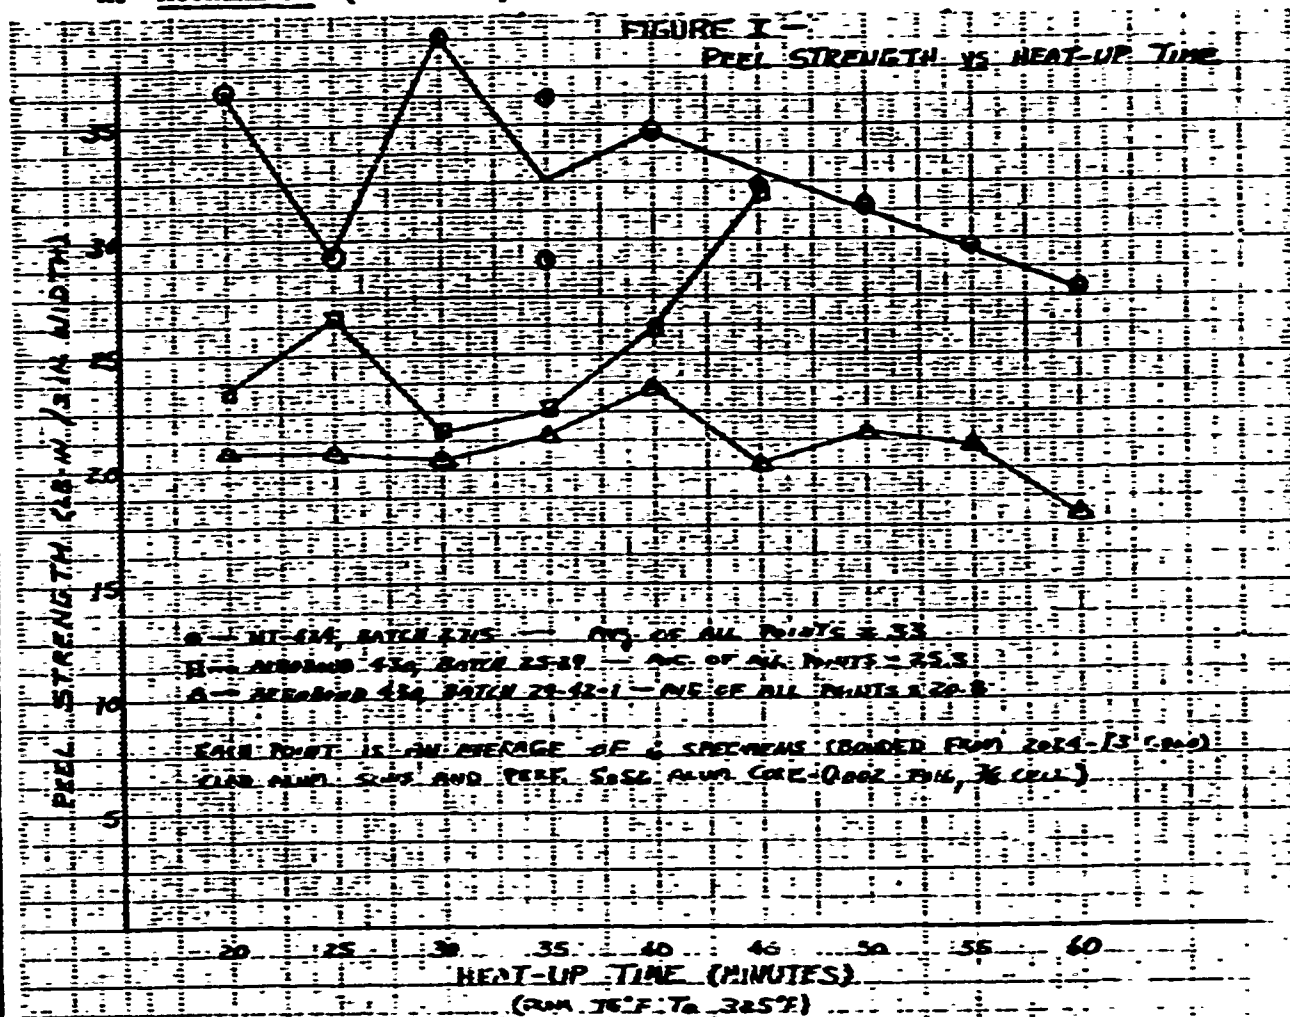 FIGURE I —
PEEL STRENGTH VS HEAT-UP TIME
PEEL STRENGTH (LB-IN/3IN WIDTH)
20
15
10
5
⊙ — HT-424, BATCH — AVG. OF ALL POINTS = 33
⊡ — AEROBOND 430, BATCH 25-29 — AVG. OF ALL POINTS = 25.5
△ — AEROBOND 430, BATCH 29-42-1 — AVG OF ALL POINTS = 20.8
EACH POINT IS AN AVERAGE OF 6 SPECIMENS (BONDED FROM 2024-T3
CLAD ALUM SKINS AND PERF. 5052 ALUM CORE-0.002 CELL)
20 25 30 35 40 45 50 55 60
HEAT-UP TIME (MINUTES)
(FROM 75°F TO 325°F)